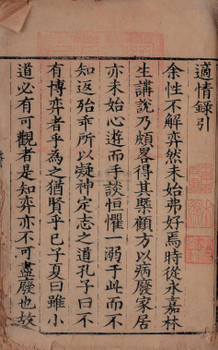 適情錄引
余性不解弈然未始弗好焉時從永嘉林
生講說乃頗畧得其槩顧方以病廢家居
亦未始心遊而手談恒懼一溺于此而不
知返殆乖所以凝神定志之道孔子曰不
有博弈者乎為之猶賢乎已子夏曰雖小
道必有可觀者是知弈亦不可盡廢也故